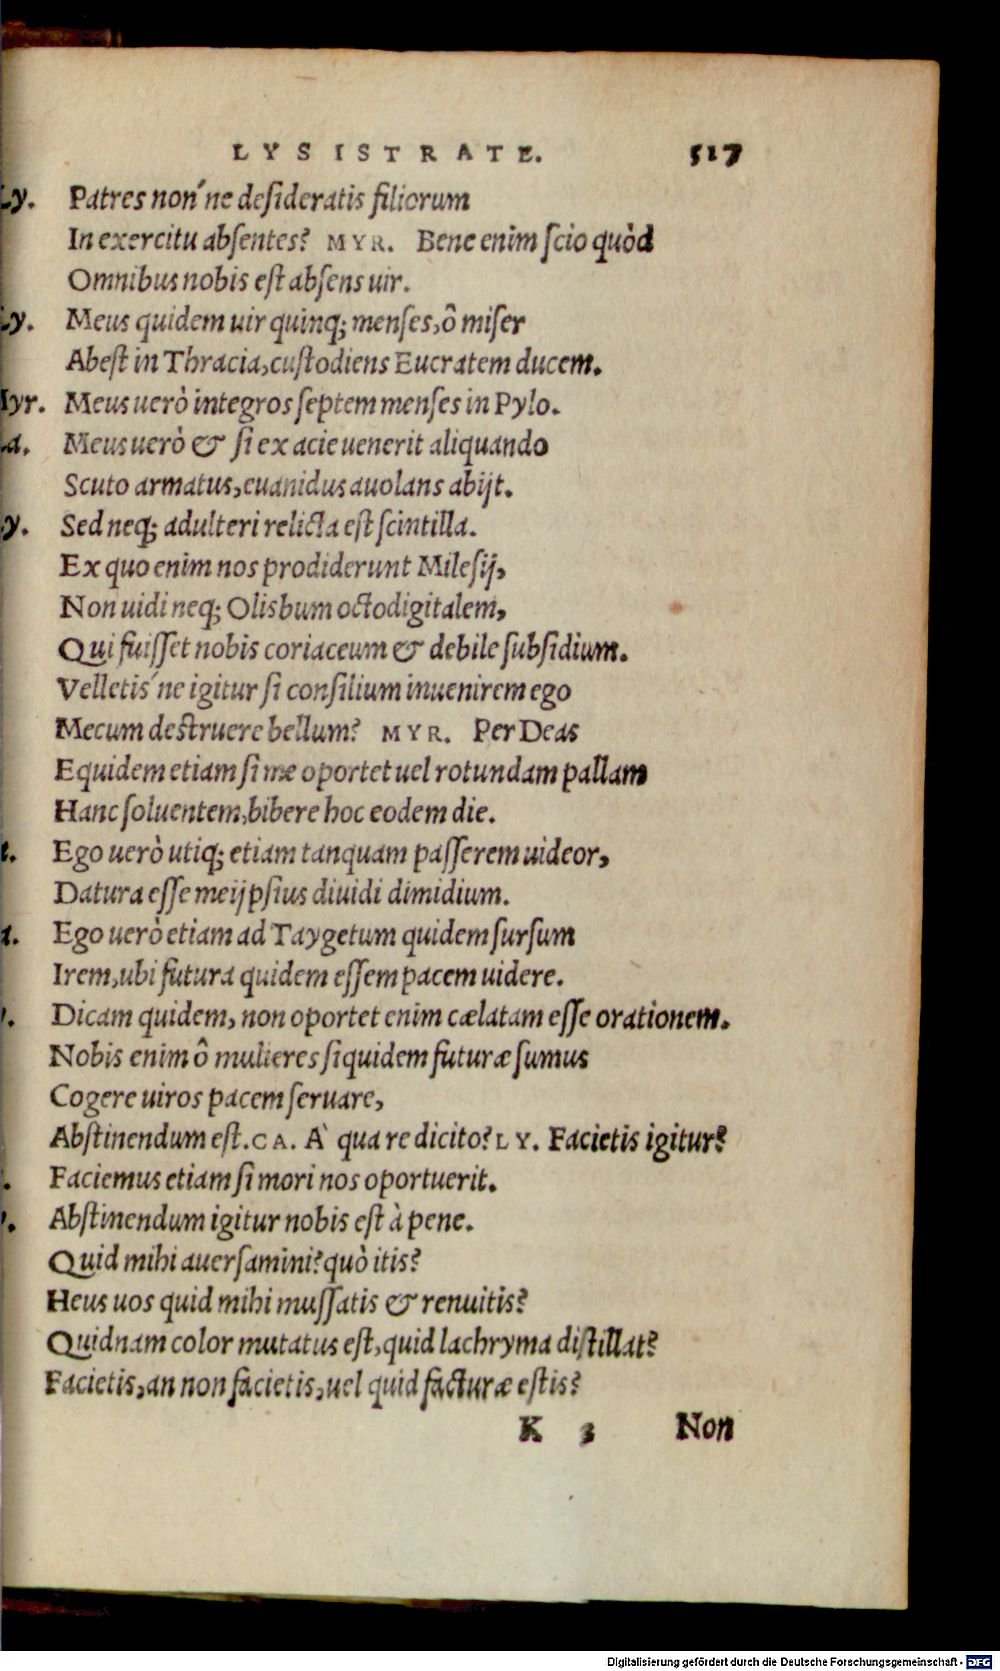 LYSISTRATE. 517
Ly. Patres non´ne desideratis filiorum
In exercitu absentes? MYR. Bene enim scio quòd
Omnibus nobis est absens uir.
Ly. Meus quidem uir quinq; menses, ô miser
Abest in Thracia, custodiens Eucratem ducem.
Myr. Meus uerò integros septem menses in Pylo.
a. Meus uerò & si ex acie uenerit aliquando
Scuto armatus, euanidus auolans abijt.
y. Sed neq; adulteri relicta est scintilla.
Ex quo enim nos prodiderunt Milesij,
Non uidi neq; Olisbum octodigitalem,
Qui fuisset nobis coriaceum & debile subsidium.
Velletis´ne igitur si consilium inuenirem ego
Mecum destruere bellum? MYR. Per Deas
Equidem etiam si me oportet uel rotundam pallam
Hanc soluentem, bibere hoc eodem die.
Ego uerò utiq; etiam tanquam passerem uideor,
Datura esse meijpsius diuidi dimidium.
a. Ego uerò etiam ad Taygetum quidem sursum
Irem, ubi futura quidem essem pacem uidere.
Dicam quidem, non oportet enim cælatam esse orationem.
Nobis enim ô mulieres siquidem futuræ sumus
Cogere uiros pacem seruare,
Abstinendum est. CA. A` qua re dicito? LY. Facietis igitur?
Faciemus etiam si mori nos oportuerit.
Abstinendum igitur nobis est à pene.
Quid mihi auersamini? quò itis?
Heus uos quid mihi mussatis & renuitis?
Quidnam color mutatus est, quid lachryma distillat?
Facietis, an non facietis, uel quid facturæ estis?
K 3 Non
Digitalisierung gefördert durch die Deutsche Forschungsgemeinschaft - DFG